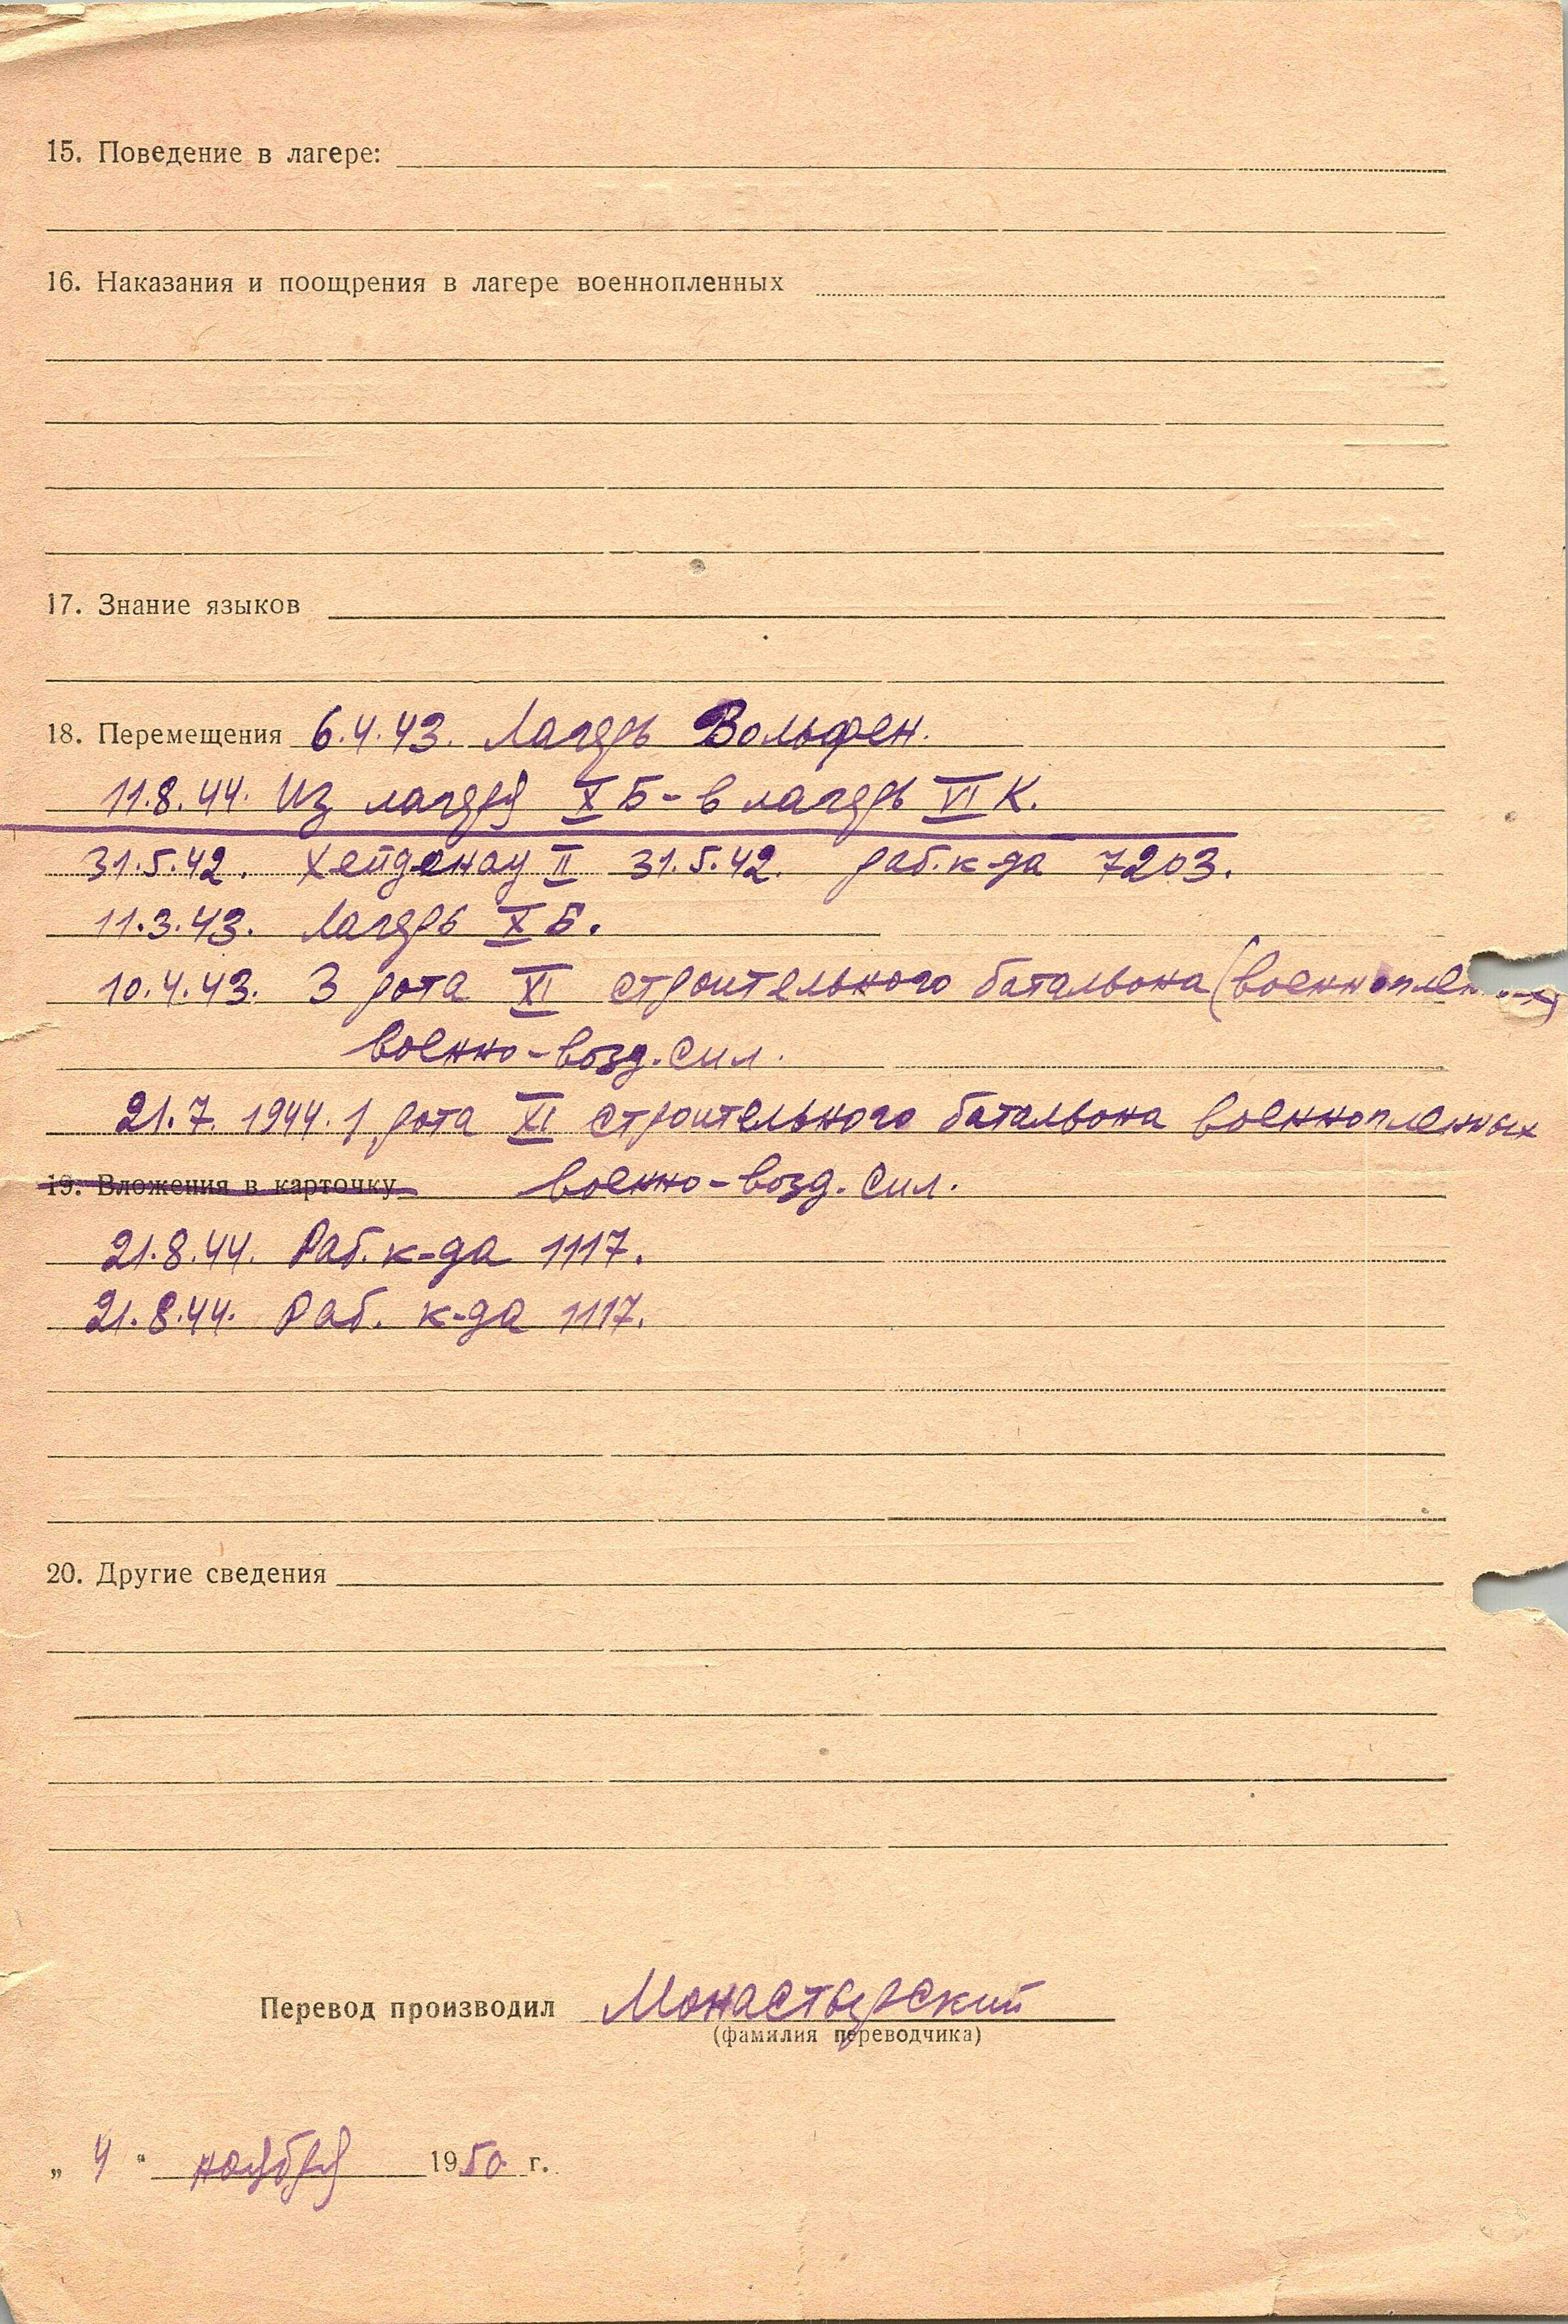 15. Поведение в лагере:
16. Наказания и поощрения в лагере военнопленных
17. Знание языков
18. Перемещения 6.4.43. Лагерь Вольфен.
11.8.44. Из лагеря X Б - в лагерь VI К.
31.5.42. Хейденау II 31.5.42. раб. к-да 7203.
11.3.43. Лагерь X Б.
10.4.43. 3 рота XI строительного батальона (военноплен...х)
военно-возд. сил.
21.7. 1944. 1 рота XI строительного батальона военнопленных
19. Вложения в карточку военно-возд. сил.
21.8.44. Раб. к-да 1117.
21.8.44. Раб. к-да 1117.
20. Другие сведения
Перевод производил Монастырский
(фамилия переводчика)
„ 4 “ ноября 1950 г.